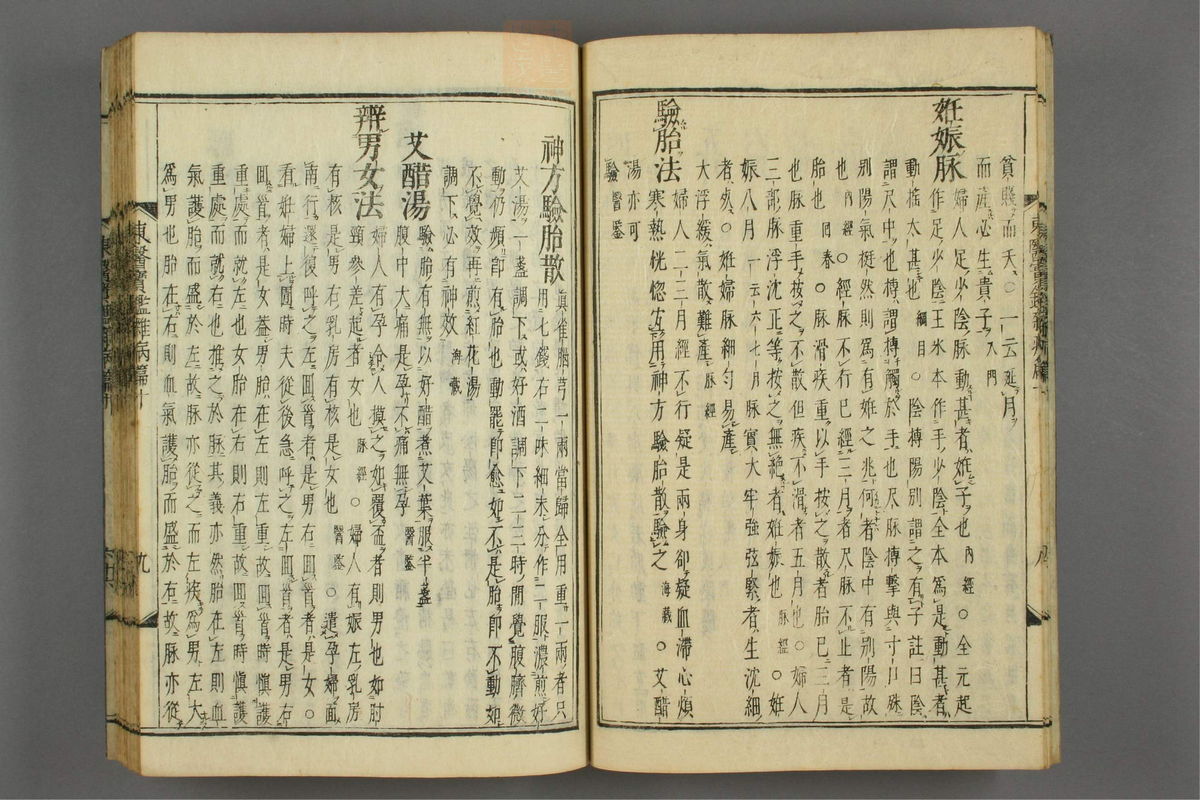 貧賤而夭○一云延月
而產必生貴子入門
妊娠脉婦人足少陰脉動甚者妊子也內經○全元起
作足少陰王氷本作手少陰全本爲是動甚者
動搖太甚也綱目○陰搏陽別謂之有子註曰陰
謂尺中也搏謂搏觸於手也尺脉搏擊與寸口殊
別陽氣挺然則爲有妊之兆何者陰中有別陽故
也內經○經不行已經三月者尺脉不止者是
胎也回春○脉滑疾重以手按之散者胎已三月
也脉重手按之不散但疾不滑者五月也○婦人
三部脉浮沈正等按之無絶者妊娠也脉經○妊
娠八月一云六七月脉實大牢強弦緊者生沈細
者死○妊婦脉細勻易產
大浮緩氣散難產脉經
驗胎法婦人二三月經不行疑是兩身卻疑血滯心煩
寒熱恍惚宜用神方驗胎散驗之海藏○艾醋
湯亦可
驗醫鑑
神方驗胎散眞雀腦芎一兩當歸全用重一兩者只
用七錢右二味細末分作二服濃煎好
艾湯一盞調下或好酒調下二三時間覺腹臍微
動仍頻卽有胎也動罷卽愈如不是胎卽不動如
不覺效再煎紅花湯
調下必有神效海藏
艾醋湯驗胎有無以好醋煮艾葉服半盞
腹中大痛是孕不痛無孕醫鑑
辨男女法婦人有孕令人摸之如覆盃者則男也如肘
頸參差起者女也脉經○婦人有娠左乳房
有核是男右乳房有核是女也醫鑑○遣孕婦面
南行還復呼之左回首者是男右回首者是女○
看妊婦上圊時夫從後急呼之左回首者是男右
回首者是女盖男胎在左則左重故回首時愼護
重處而就左也女胎在右則右重故回首時愼護
重處而就右也推之於脉其義亦然胎在左則血
氣護胎而盛於左故脉亦從之而左疾爲男左大
爲男也胎在右則血氣護胎而盛於右故脉亦從
東醫寶鑑雜病篇十
九